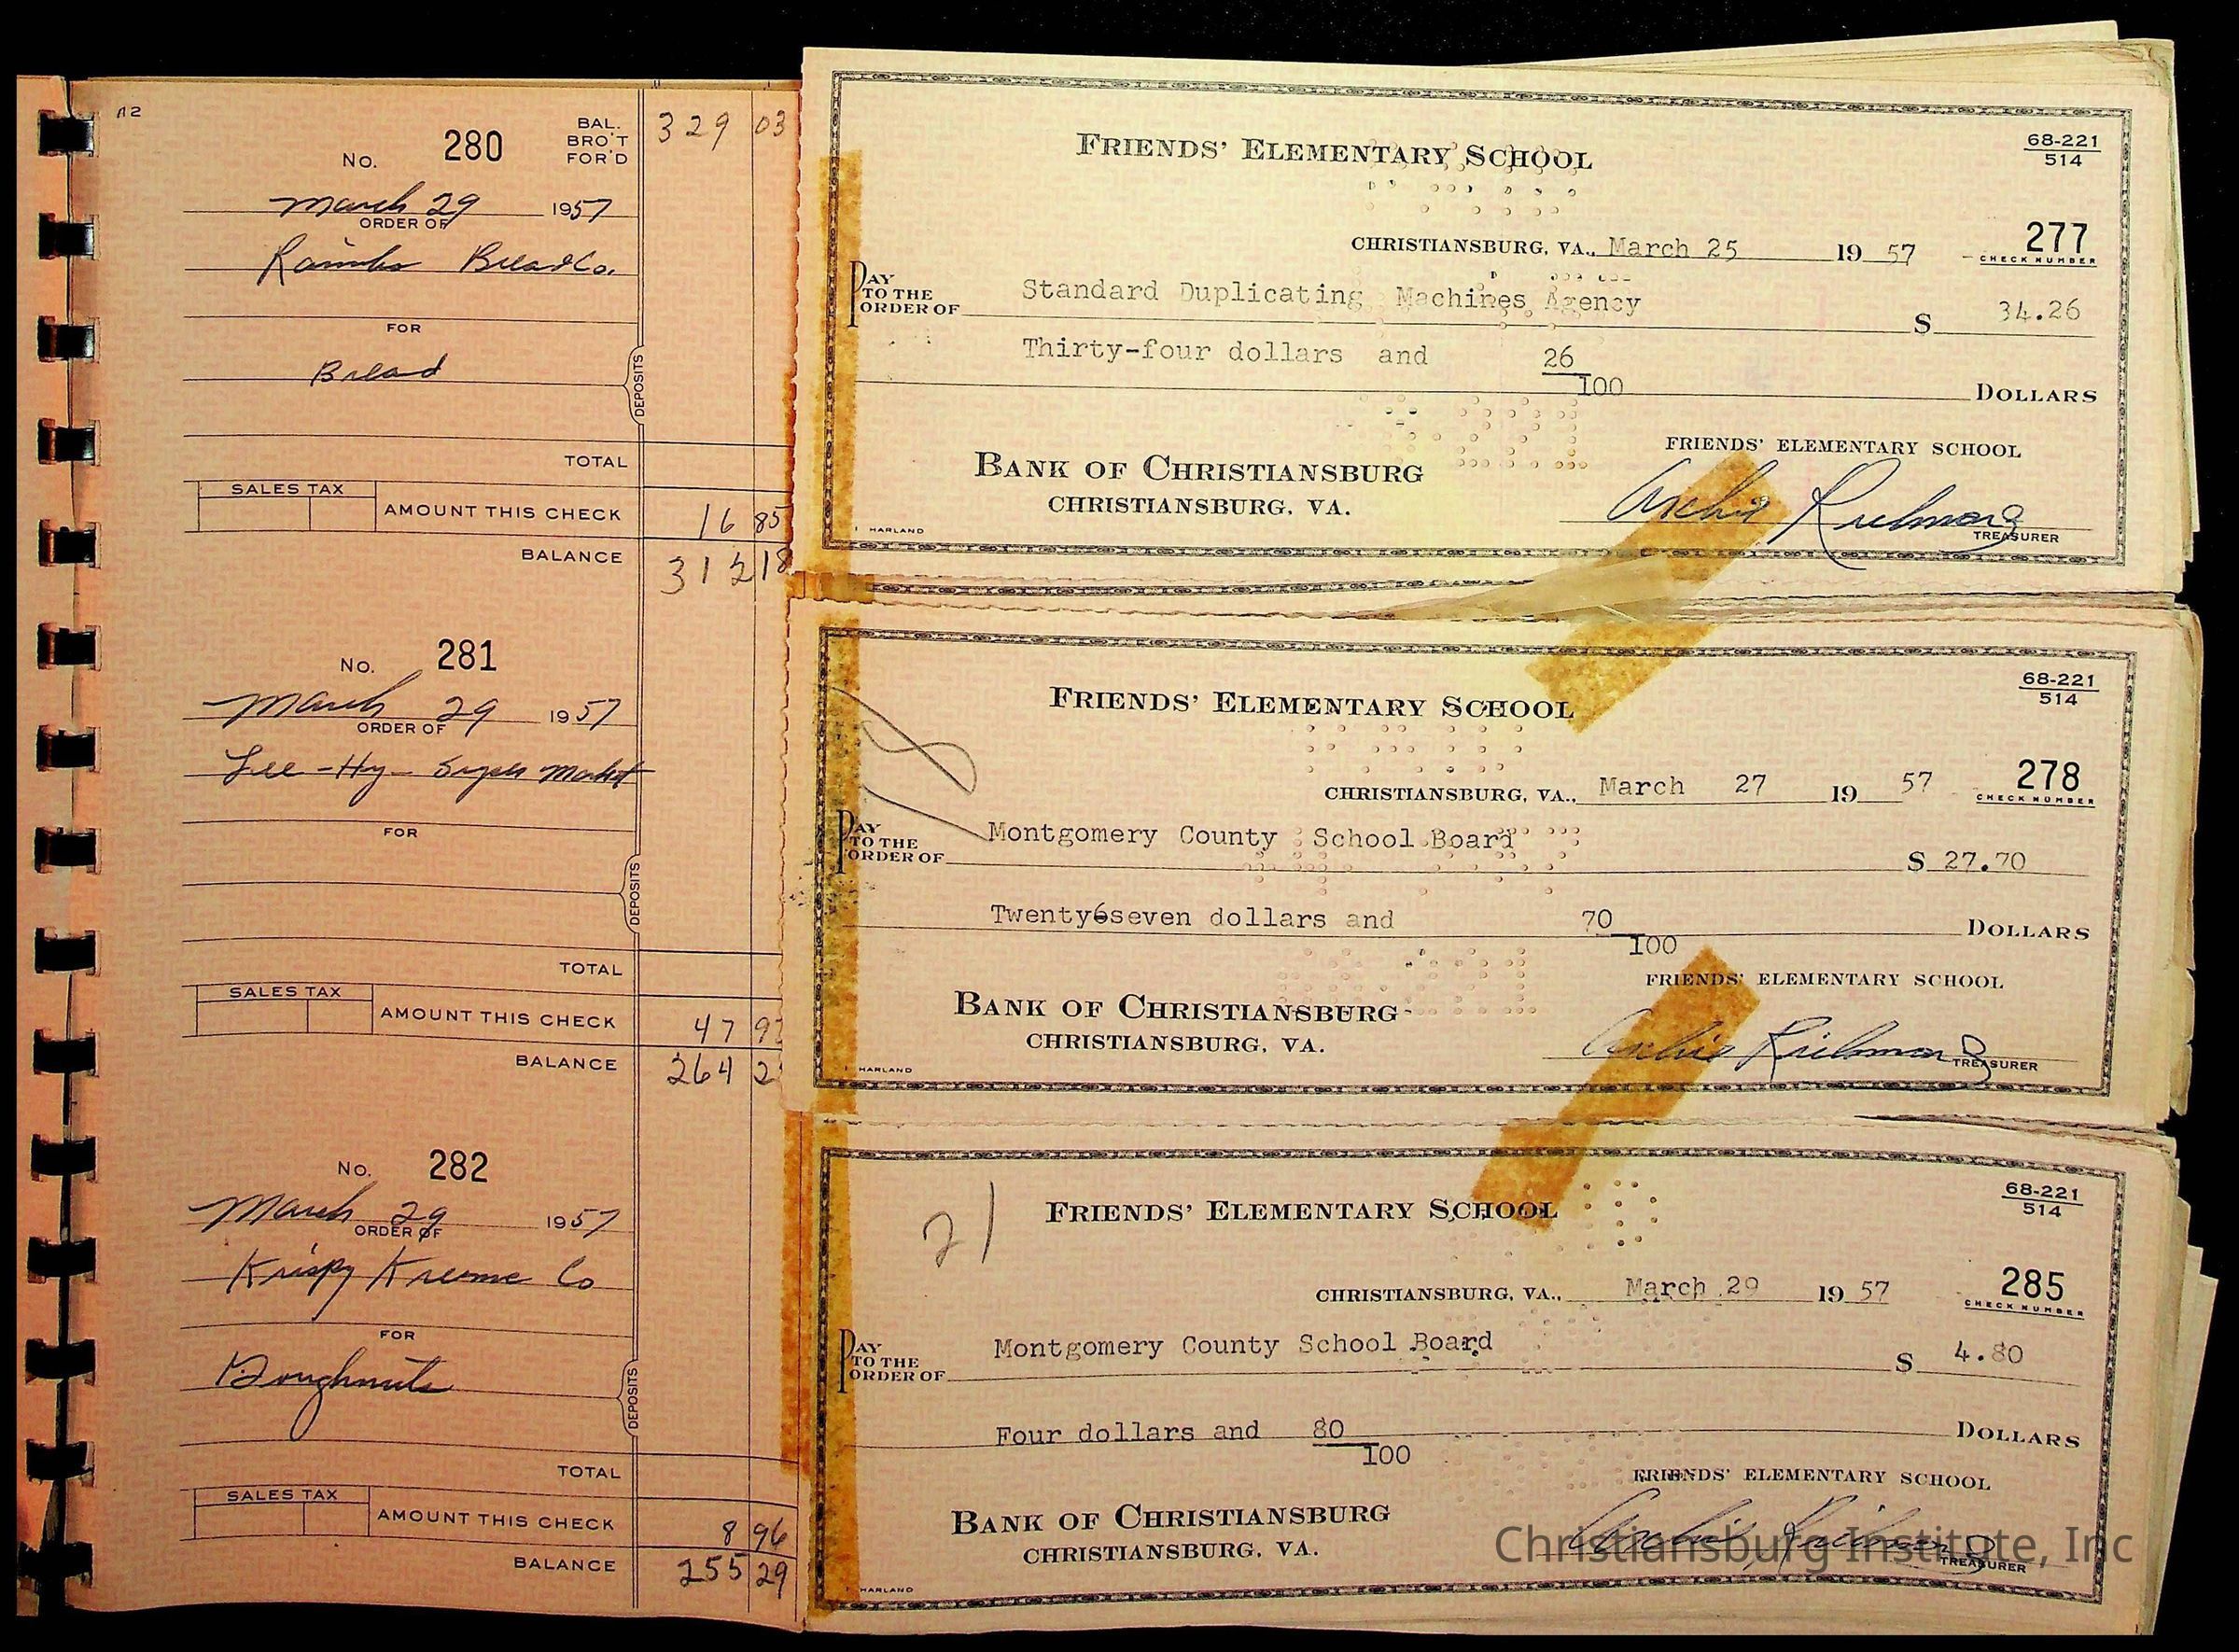 No. 280 BAL. BRO'T FOR'D 329 03
March 29 1957
ORDER OF
Rainbo Bread Co.
FOR
Bread
DEPOSITS
TOTAL
SALES TAX AMOUNT THIS CHECK 16 85
BALANCE 312 18
No. 281
March 29 1957
ORDER OF
Lee-Hy-Super Market
FOR
DEPOSITS
TOTAL
SALES TAX AMOUNT THIS CHECK 47 9
BALANCE 264 2
No. 282
March 29 1957
ORDER OF
Krispy Kreme Co
FOR
Doughnuts
DEPOSITS
TOTAL
SALES TAX AMOUNT THIS CHECK 8 96
BALANCE 255 29
FRIENDS' ELEMENTARY SCHOOL
68-221
514
CHRISTIANSBURG, VA., March 25 19 57
277
CHECK NUMBER
PAY TO THE ORDER OF Standard Duplicating Machines Agency $ 34.26
Thirty-four dollars and 26/100 DOLLARS
FRIENDS' ELEMENTARY SCHOOL
BANK OF CHRISTIANSBURG
CHRISTIANSBURG, VA.
Archie Richmond
TREASURER
HARLAND
FRIENDS' ELEMENTARY SCHOOL
68-221
514
CHRISTIANSBURG, VA., March 27 19 57
278
CHECK NUMBER
PAY TO THE ORDER OF Montgomery County School Board $ 27.70
Twenty6seven dollars and 70/100 DOLLARS
FRIENDS' ELEMENTARY SCHOOL
BANK OF CHRISTIANSBURG
CHRISTIANSBURG, VA.
Archie Richmond
TREASURER
HARLAND
21
FRIENDS' ELEMENTARY SCHOOL
68-221
514
CHRISTIANSBURG, VA., March 29 19 57
285
CHECK NUMBER
PAY TO THE ORDER OF Montgomery County School Board $ 4.80
Four dollars and 80/100 DOLLARS
FRIENDS' ELEMENTARY SCHOOL
BANK OF CHRISTIANSBURG
CHRISTIANSBURG, VA.
Archie Richmond
TREASURER
HARLAND
Christiansburg Institute, Inc